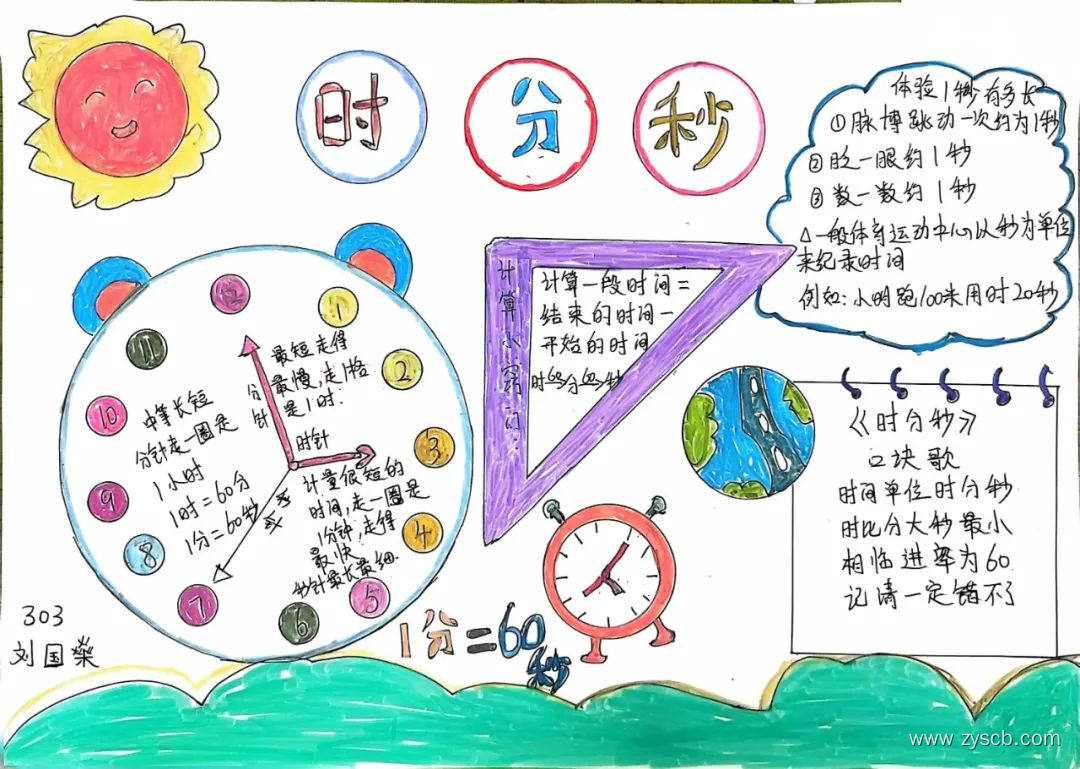 时 分 秒
体验1秒有多长
①脉博跳动一次约为1秒
②眨一眼约1秒
③数一数约1秒
△一般体育运动中心以秒为单位
来纪录时间
例如:小明跑100米用时20秒
计算小窍门
计算一段时间=
结束的时间-
开始的时间
时60分60秒
12
1
2
3
4
5
6
7
8
9
10
11
最短走得
最慢,走1格
是1时.
分针
时针
秒针
中等长短
分针走一圈是
1小时
1时=60分
1分=60秒
计量很短的
时间,走一圈是
1分钟,走得
最快
秒针最长最细.
《时分秒》
口诀歌
时间单位时分秒
时比分大秒最小
相临进率为60
记请一定错不了
1分=60秒
303
刘国燊
www.zyscb.com